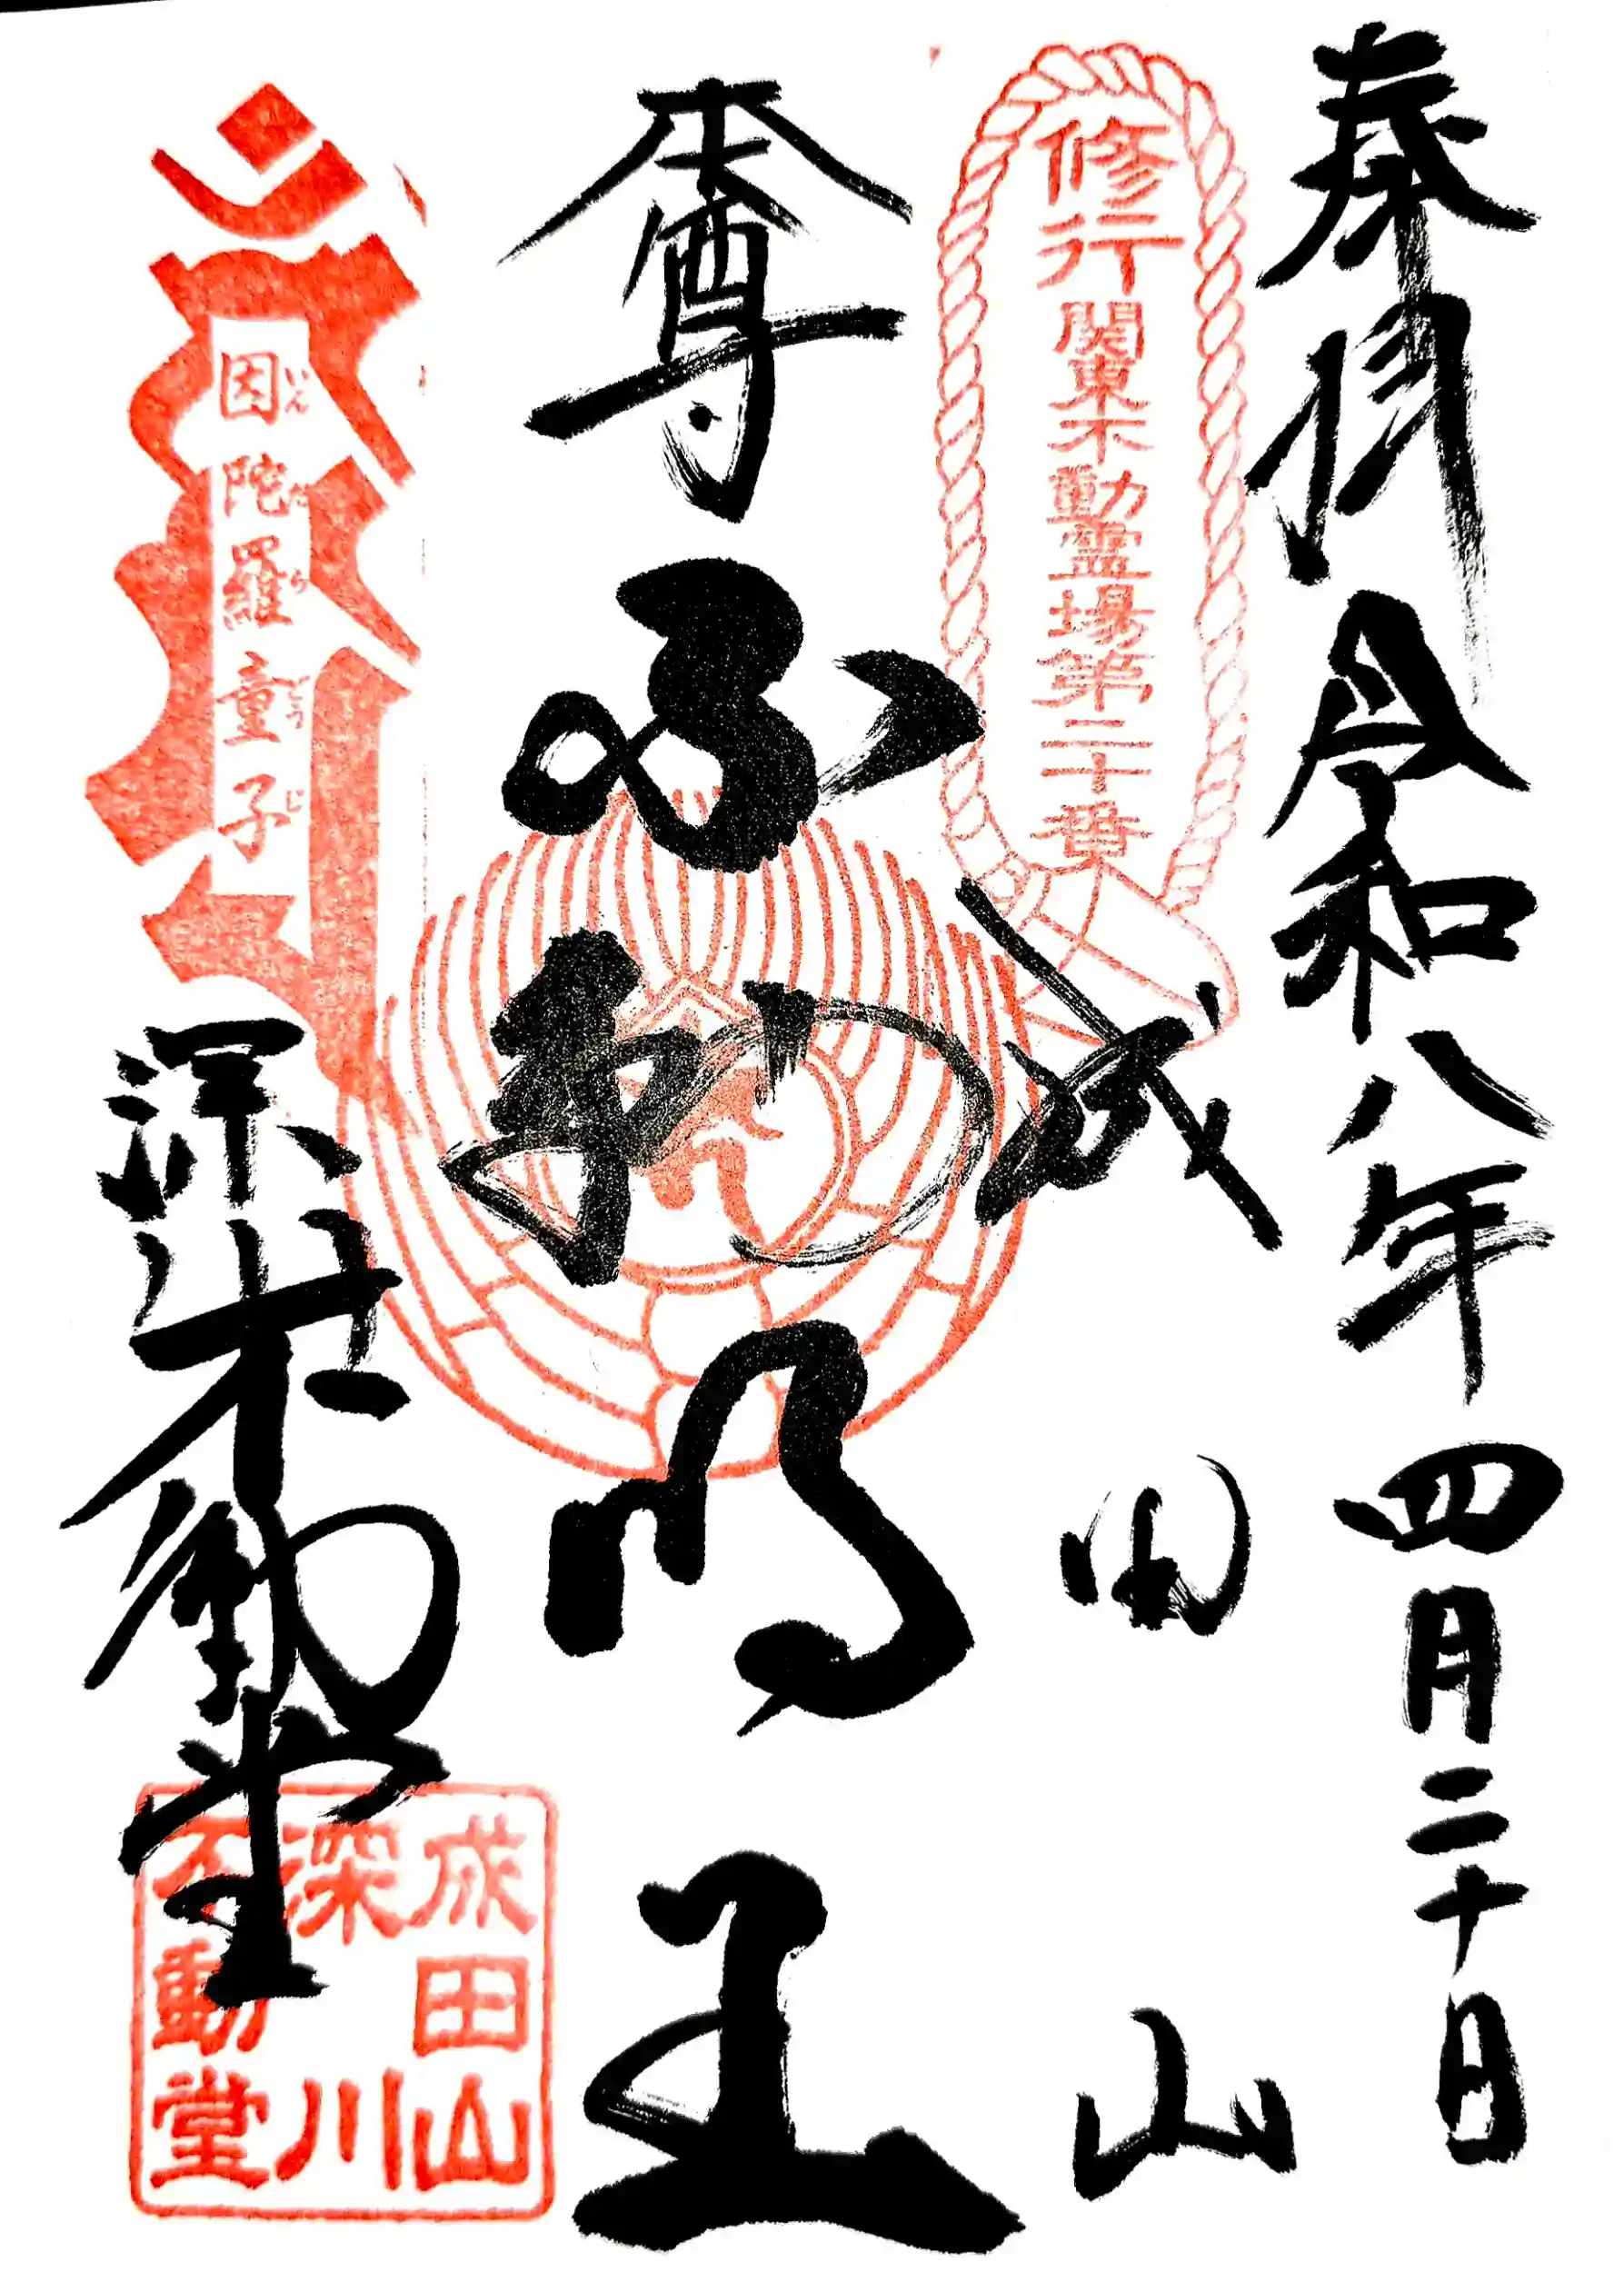 奉拝 令和八年四月二十日
修行 関東不動霊場第二十番
成田山
本尊 不動明王
因陀羅童子
いんだらどうじ
深川不動堂
成田山
深川
不動堂